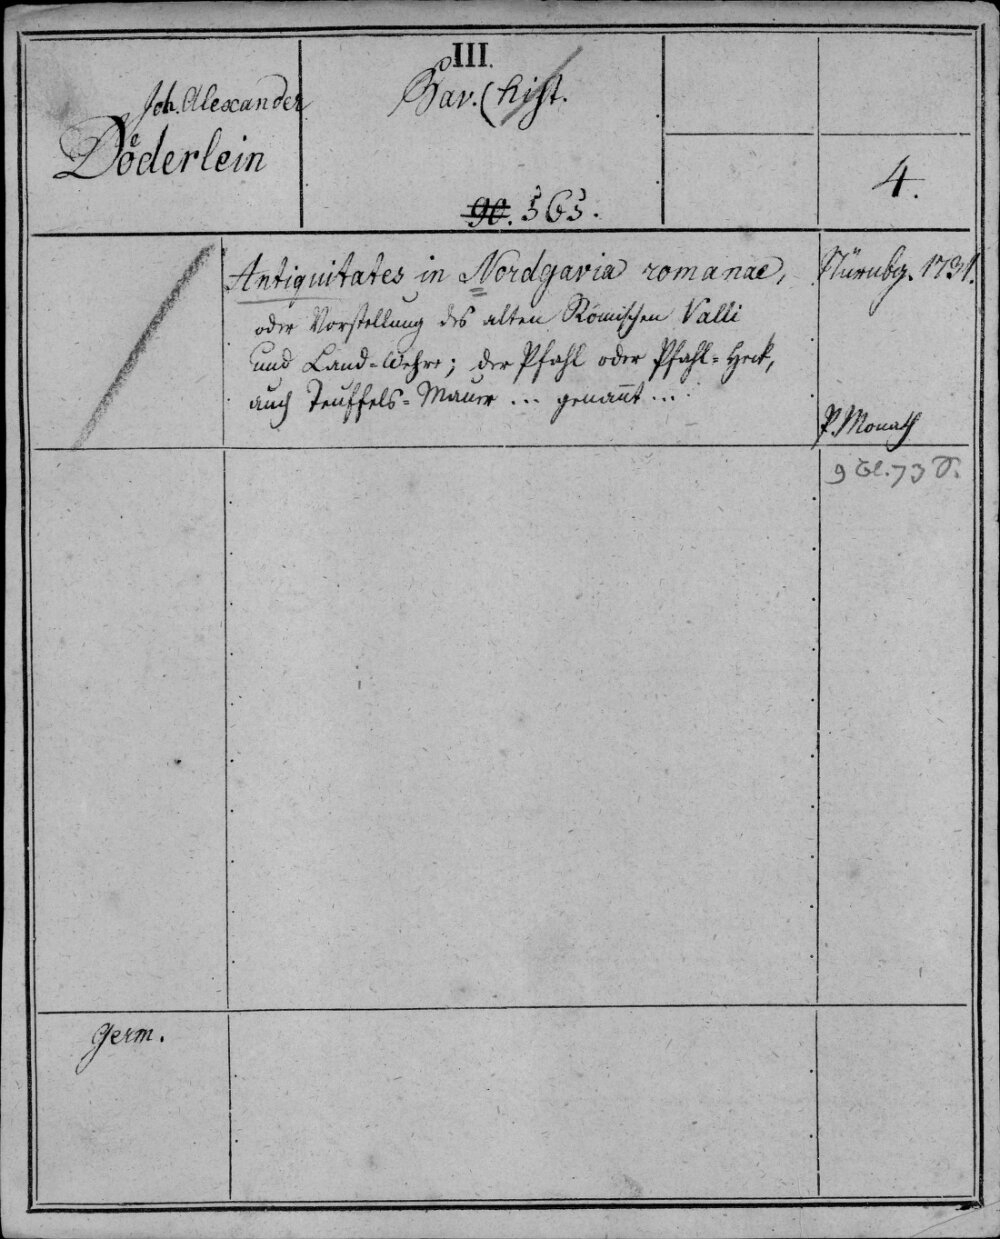 Joh. Alexander
Döderlein
III.
Bav. (hist.
90. 563.
4.
Antiquitates in Nordgavia romanae,
oder Vorstellung des alten Römischen Valli
und Land-Wehre; der Pfahl oder Pfahl-Heck,
auch Teuffels-Mauer ... genannt ...
Nürnbg. 1731.
P. Monath
Germ.